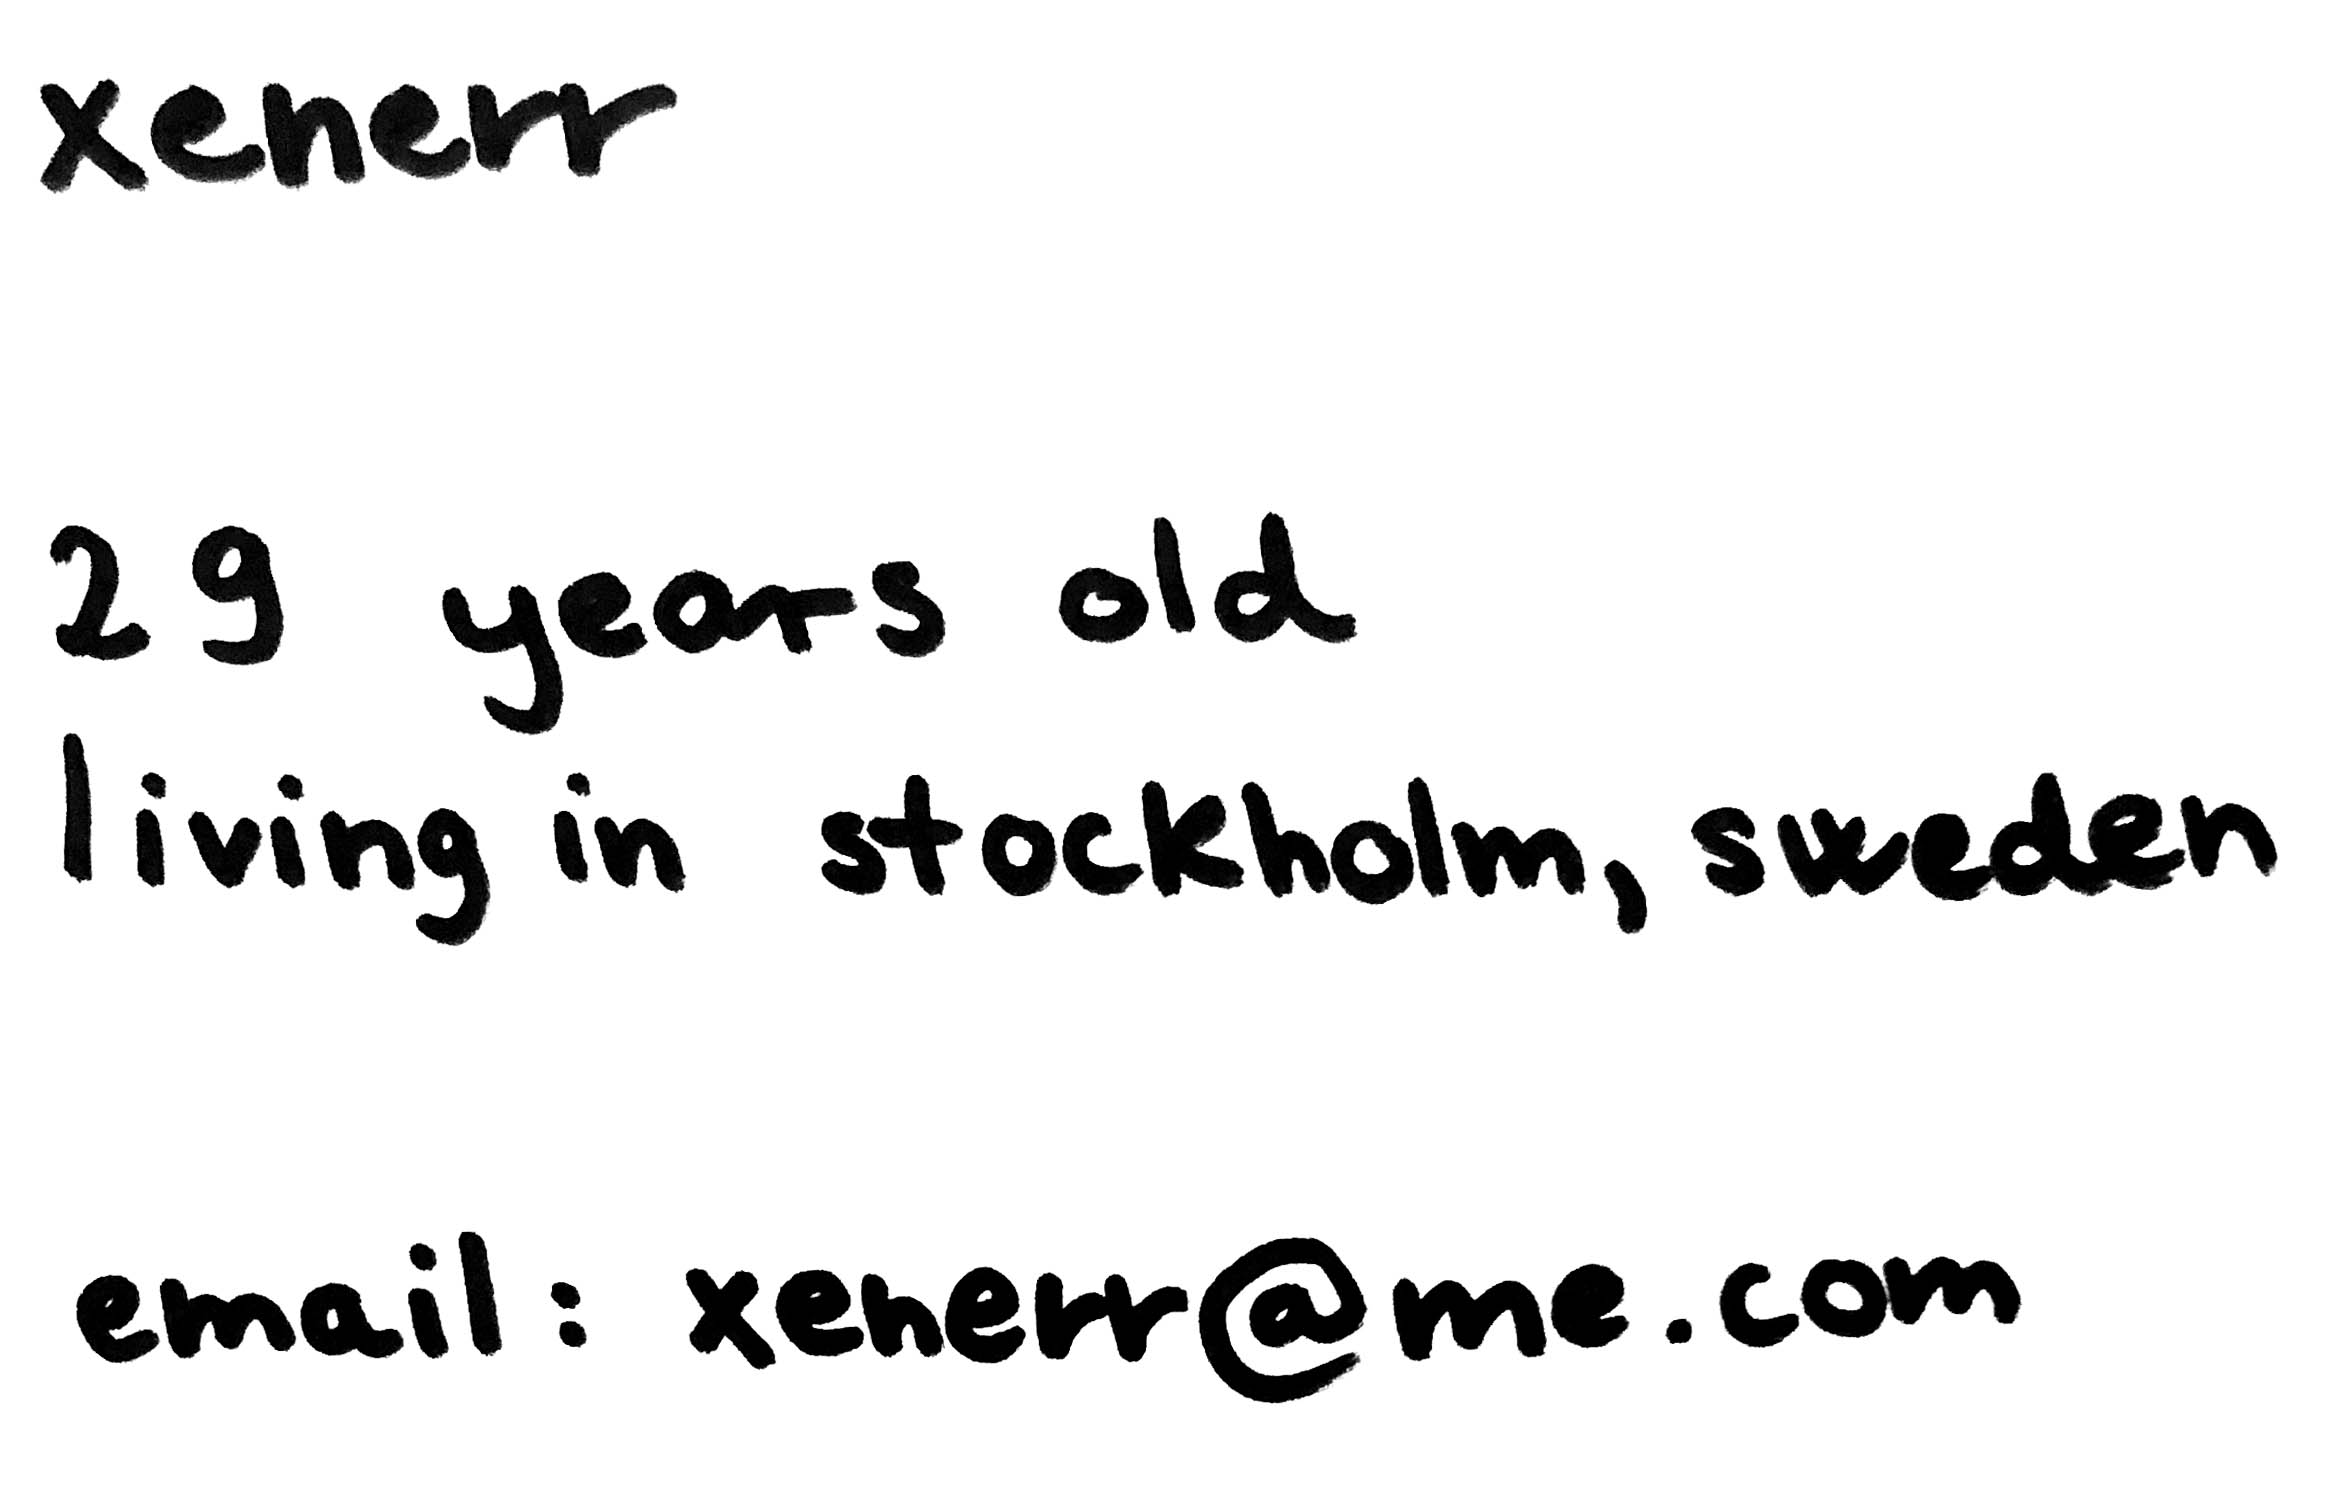 xenerr
29 years old
living in stockholm, sweden
email: xenerr@me.com